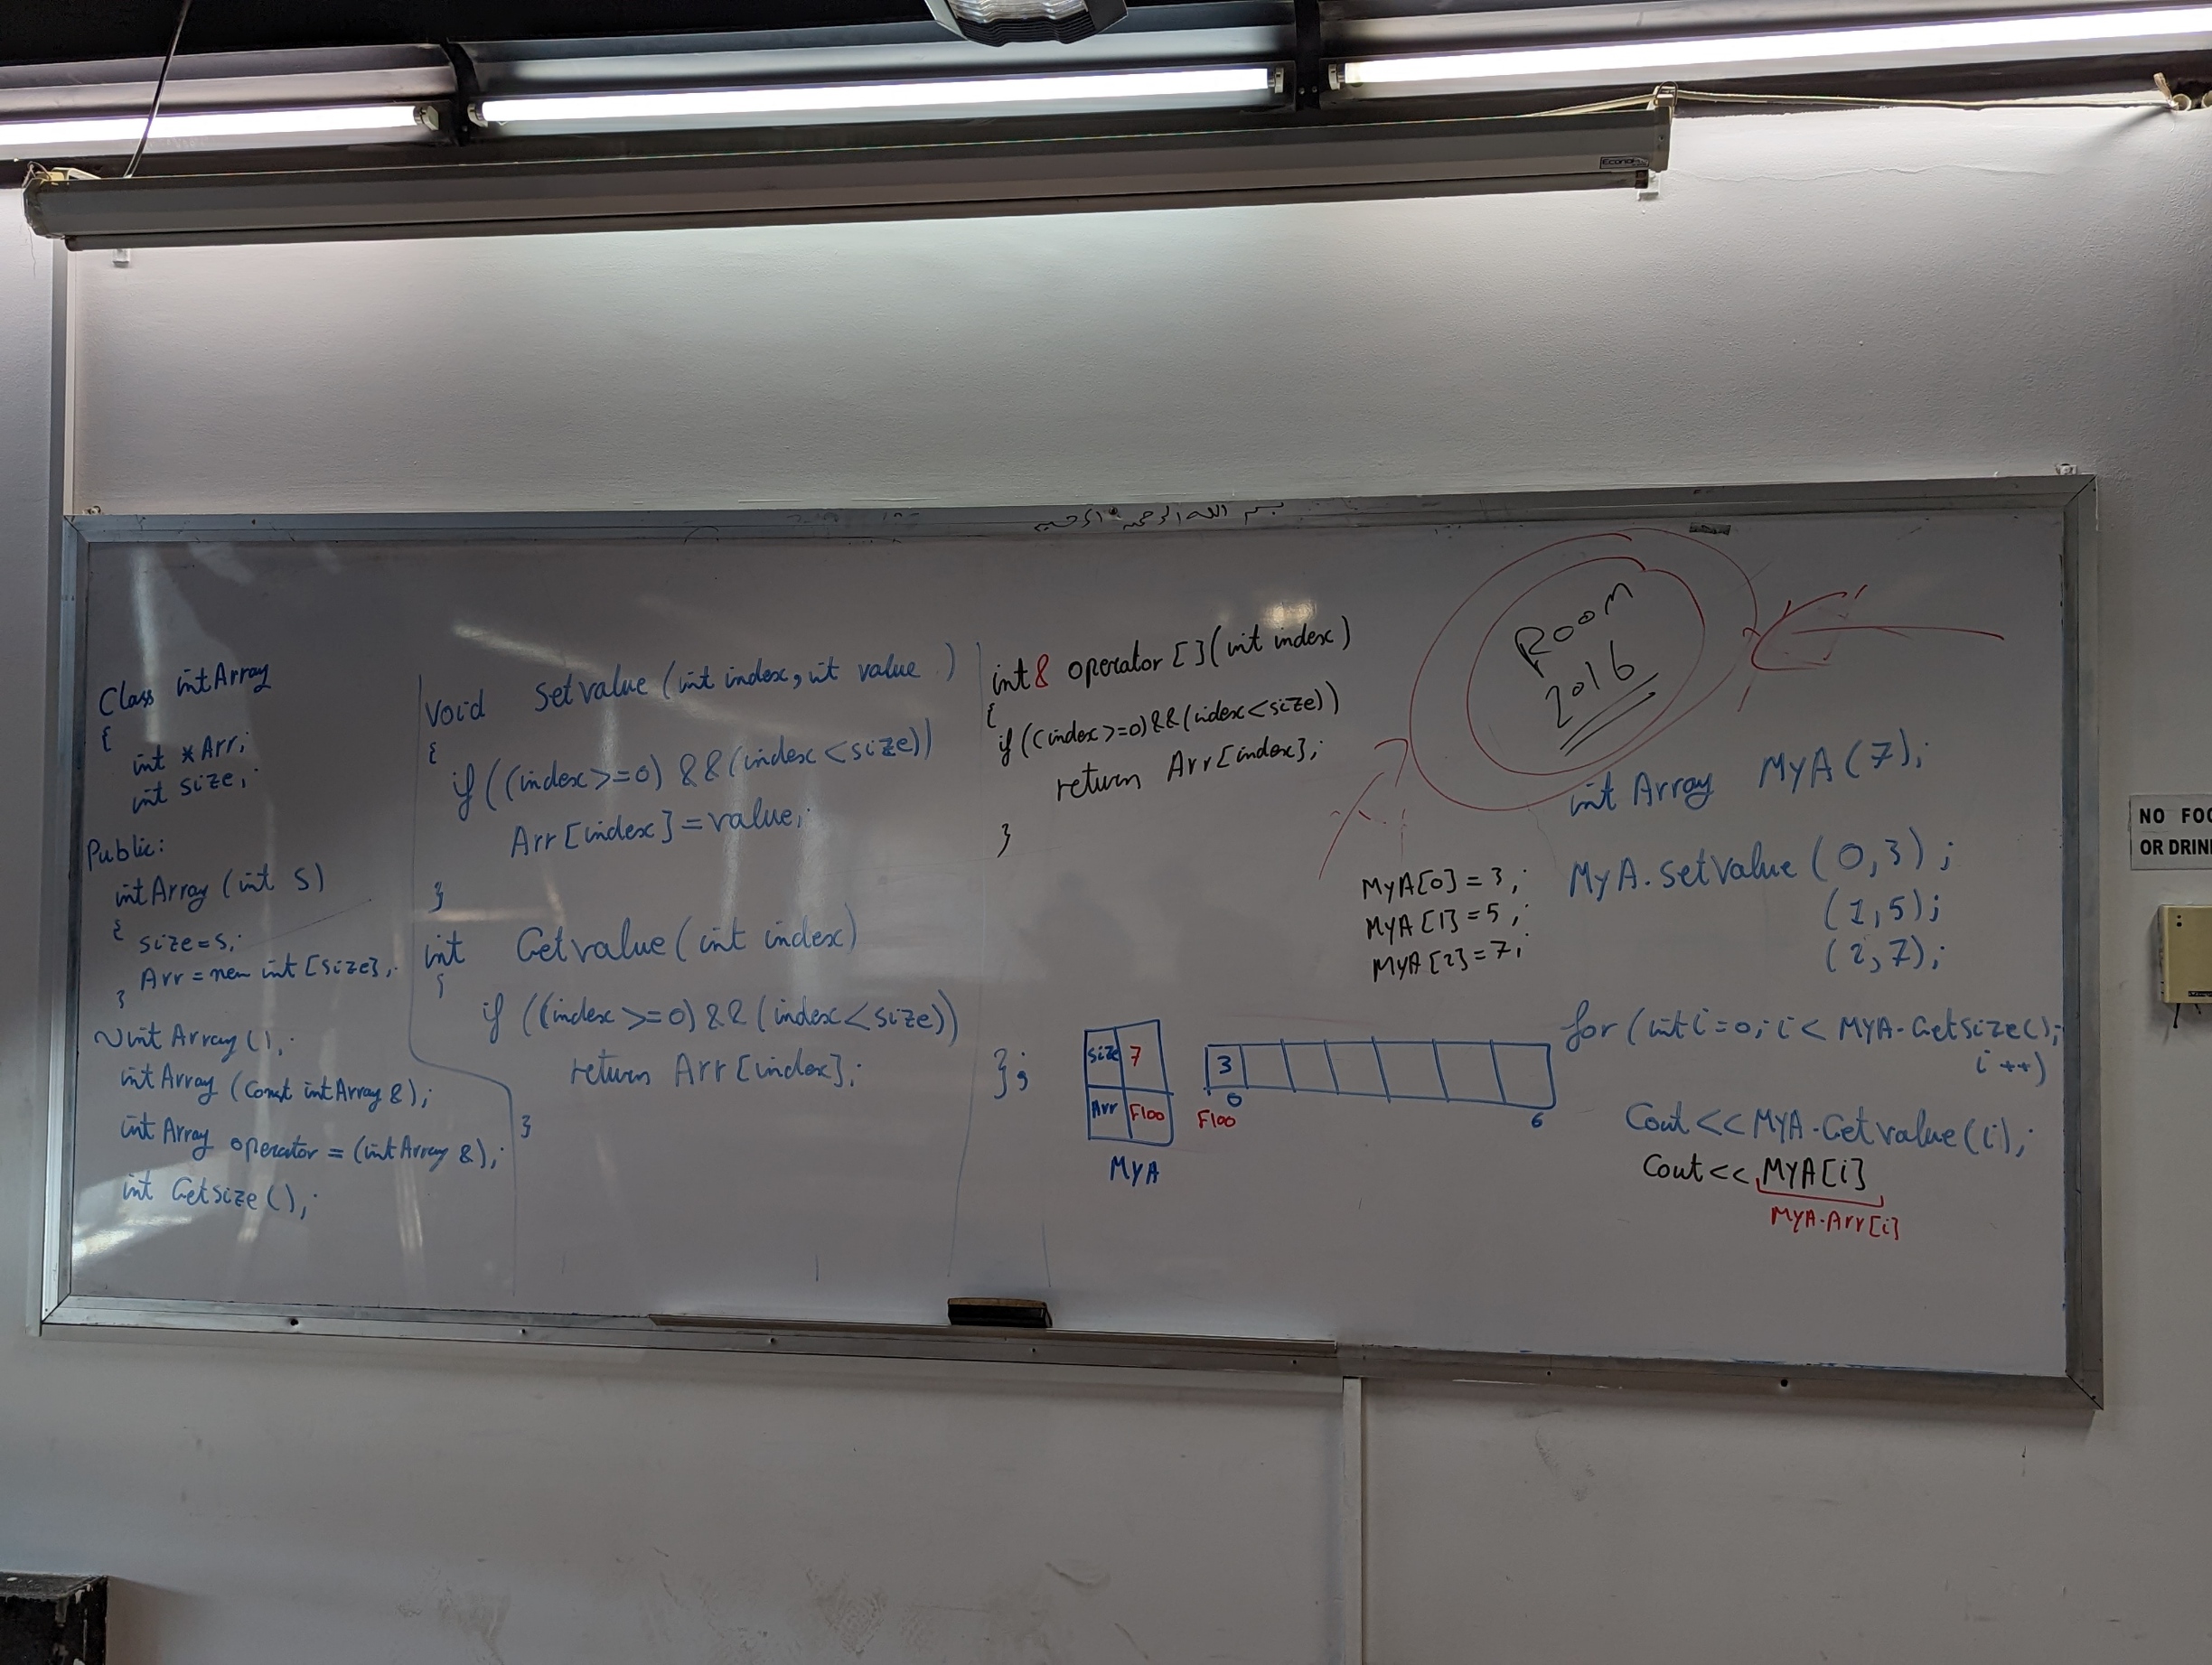 Econo
بسم الله الرحمن الرحيم
Class intArray
{
int *Arr;
int size;
Public:
intArray (int s)
{
size=s;
Arr = new int [size];
}
~intArray();
intArray (const intArray &);
intArray operator = (intArray &);
int Getsize();
Void Setvalue (int index, int value )
{
if ((index>=0) && (index<size))
Arr[index]=value;
}
int Getvalue (int index)
{
if ((index>=0) && (index<size))
return Arr[index];
}
int& operator [] (int index)
{
if ((index>=0) && (index<size))
return Arr[index];
}
};
Room
2016
int Array MyA (7);
MyA.setvalue (0,3);
(1,5);
(2,7);
MyA[0] = 3;
MyA[1] = 5;
MyA[2] = 7;
for (int i=0; i< MyA.Getsize();
i++)
Cout<<MyA.Getvalue(i);
Cout<< MyA[i]
MyA.Arr[i]
size 7
Arr F100
MyA
3
0
6
F100
NO FOO
OR DRIN